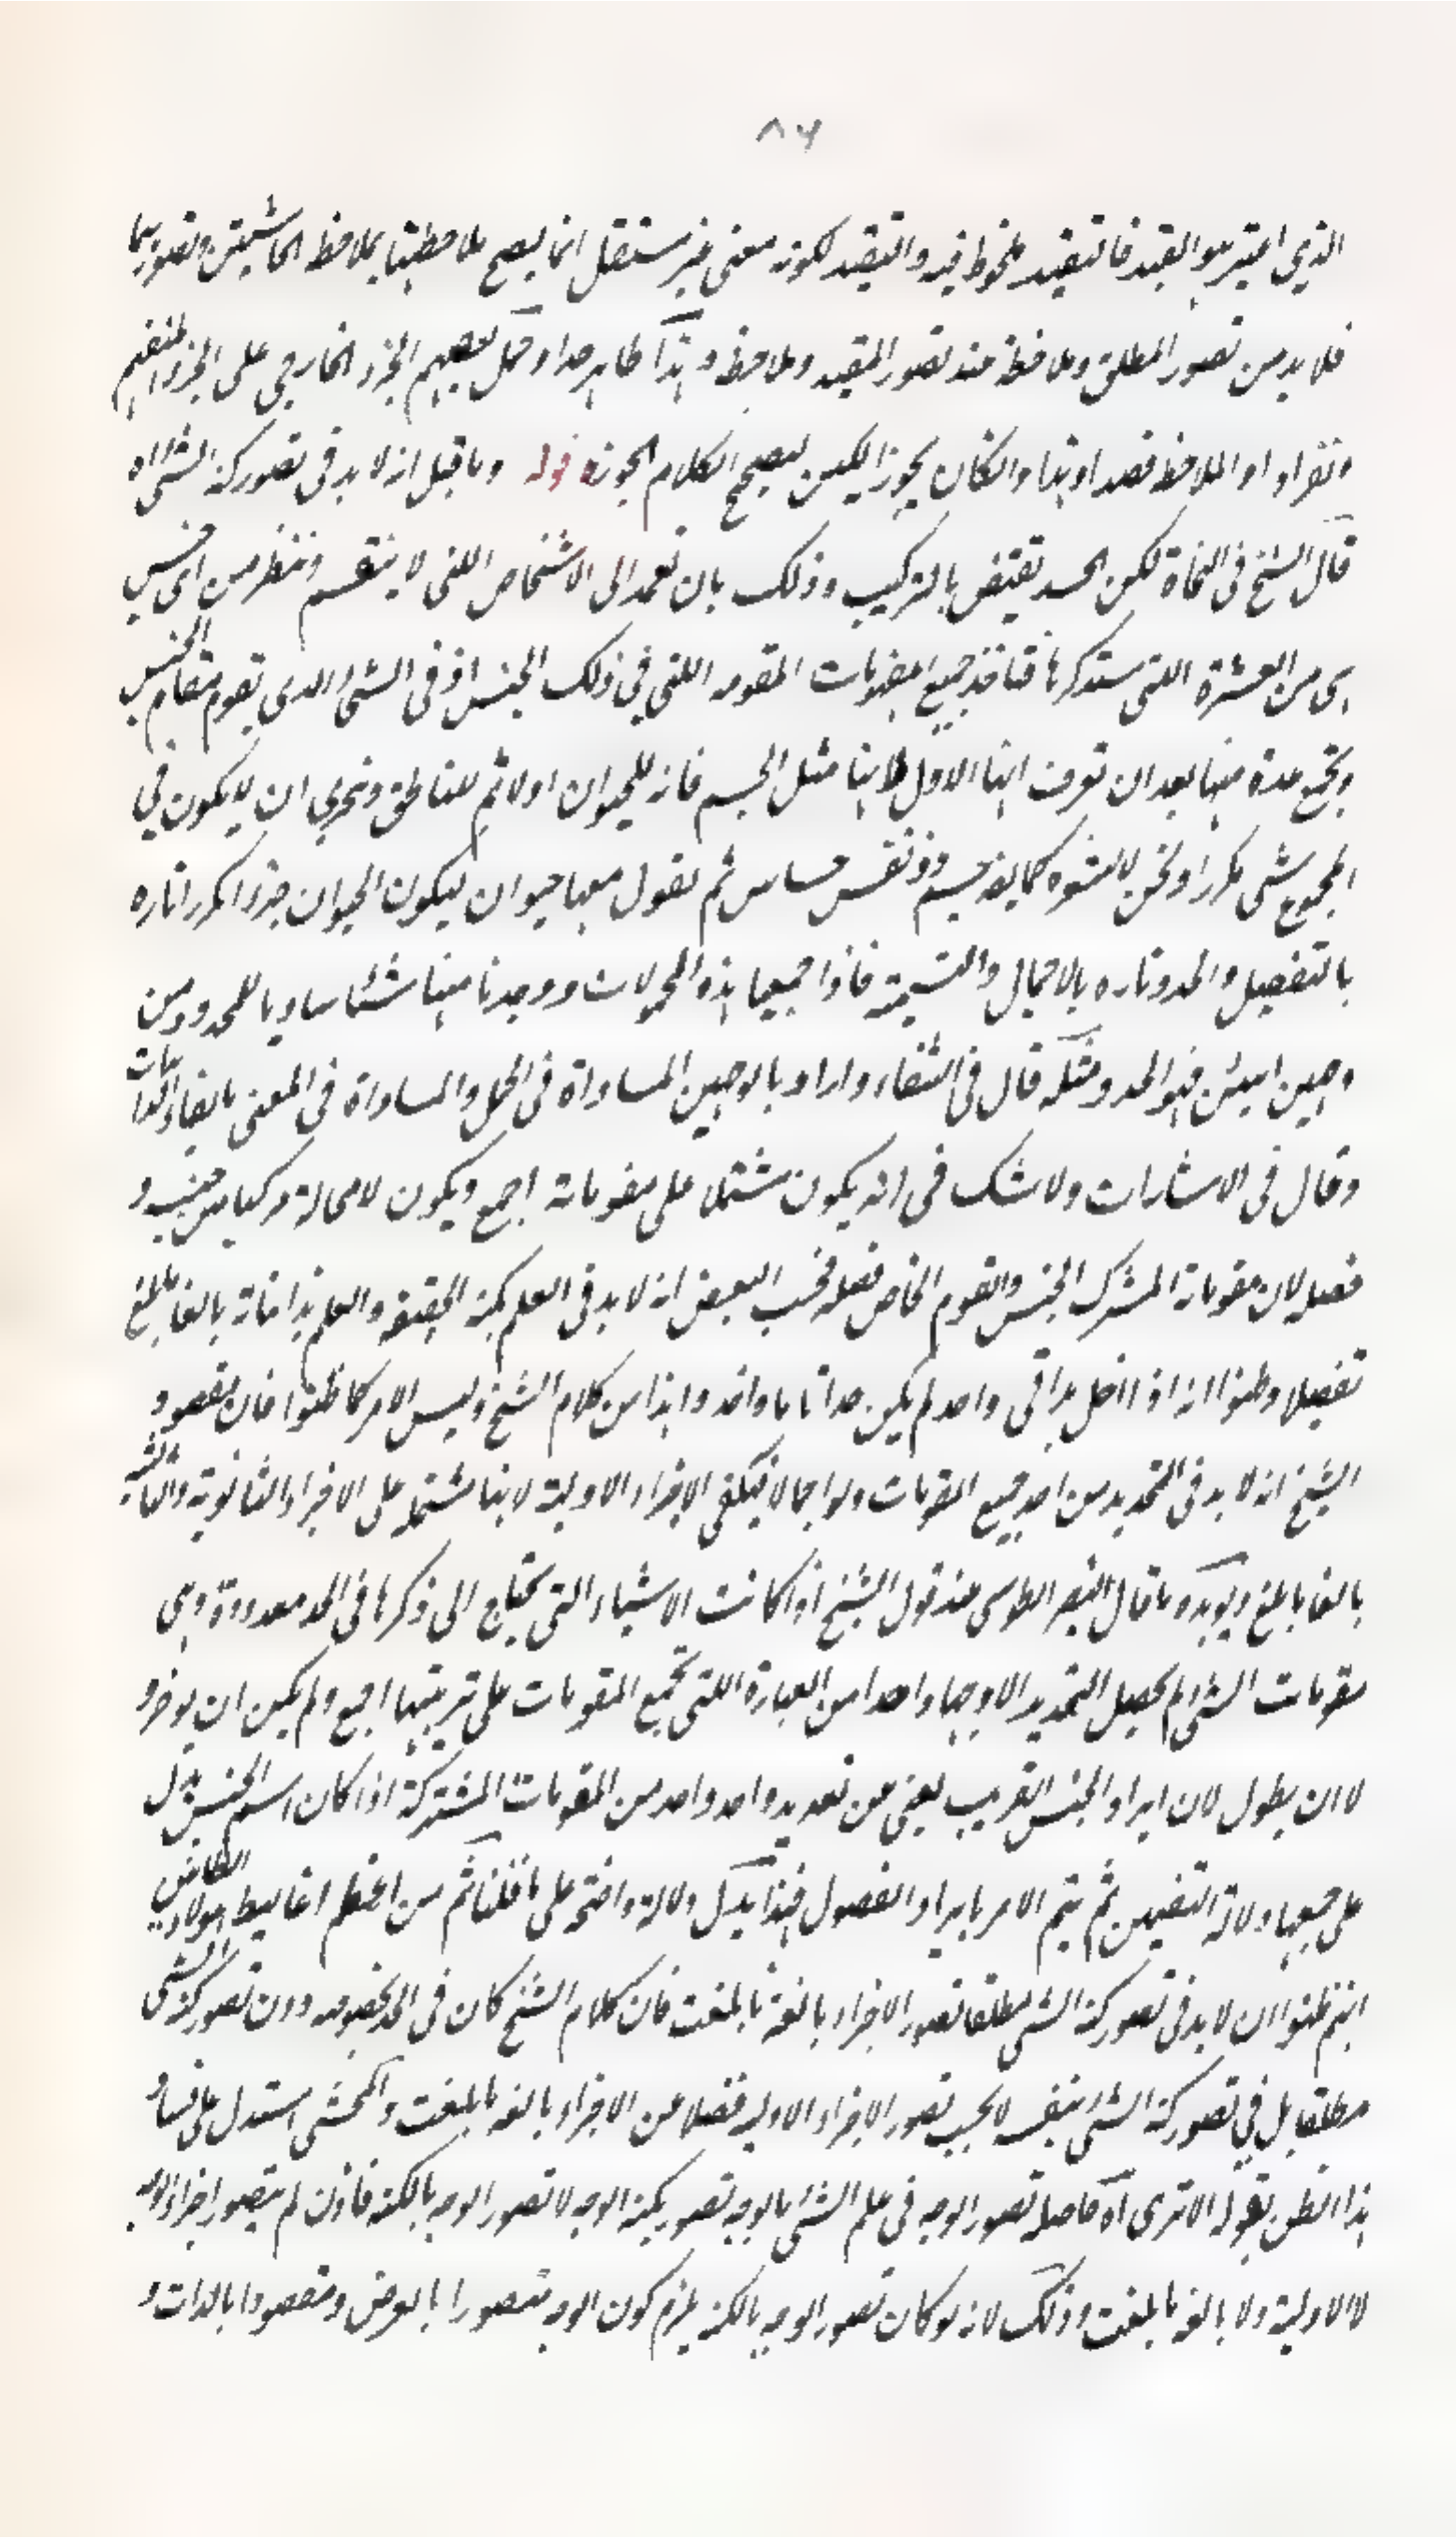 ٨٦
الذي اعتبر هو القيد فالتقييد ملحوظ فيه والتقيد لكونه معنى غير مستقل انما يصح ملاحظتها بملاحظ الحاشيتين وتصورهما
فلا بد من تصور المطلق وملاحظة عند تصور المقيد وملاحظ وهذا ظاهر جدا وحمل بعضهم الجزء الخارجي على الجزء
او الملاحظ قصدا وتبا والكان يجوز ليكن ليصح الكلام قوله وما قيل انه لا بد فى تصور كنه الشئ اه
قال الشيخ فى النجاة لكن الحد يقتنص بالتركيب وذلك بان تعمد الى الاشخاص اللتى لا ينقسم وننظر من اى جنس
هى من العشرة اللتى ستذكرها فتاخذ جميع المقومة اللتى فى ذلك الجنس او فى الشئ الذى تقوم مقام الجنس
ويجمع عدة منها بعد ان تعرف ايها الاول مثل الجسم فانه للحيوان اولا ثم للناطق ونحرى ان لا يكون فى
المجموع شئ مكررا ونحن لا نشعر كما يقال جسم ذو نفس حساس ثم نقول معها حيوان ليكون الحيوان جزءا مكررا تاره
بالتفصيل والحد وتاره بالاجمال والتسمية فاذا جمعنا هذه المحمولات ووجدنا منها شئا مساويا للمحدود من
وجهين اثنين فهو الحد ومثله قال فى الشفاء واراد بالوجهين المساواة فى الحمل والمساواة فى المعنى
وقال فى الاشارات ولا شك فى انه يكون مشتملا على مقوماته اجمع ويكون لا محالة مركبا من جنسه و
فصله لان مقوماته المشترك الجنس والمقوم الخاص فصله فحسب البعض انه لا بد فى العلم بكنه الحقيقة والعلم بذاتياته بالغا مابلغ
تفصيلا وظنوا انه اذا اخل بذاتى واحد لم يكن حدا تاما واخذوا هذا من كلام الشيخ وليس الامر كما ظنوا فان مقصود
الشيخ انه لا بد فى التحديد من اخذ جميع المقومات ولو اجمالا فيكفى الاجزاء الاولية لانها مشتملة على الاجزاء الثانوية والثالثية
بالغا ما بلغ ويؤيده ما قال النصر الطوسى عند قول الشيخ اذا كانت الاشياء التى يحتاج الى ذكرها فى الحد معدودة وهى
مقومات الشئ لم يحصل التحديد الا وجها واحدا من العبارة اللتى تجمع المقومات على ترتيبها اجمع ولم يكن ان يوجز و
لا ان يطول لان ايراد الجنس القريب يغنى عن تعديد واحد واحد من المقومات المشتركة اذا كان اسم الجنس يدل
على جميعها دلالة التضمن ثم يتم الامر بايراد الفصول فهذا يدل دلالة واضحة على ما قلنا ثم من اعظم اغاليط هؤلاء
انهم ظنوا ان لا بد فى تصور كنه الشئ مطلقا تصور الاجزاء بالغة ما بلغت فان كلام الشيخ كان فى الحد بخصوصه دون تصور كنه الشئ
مطلقا بل فى تصور كنه الشئ بنفسه لا يجب تصور الاجزاء الاولية فضلا عن الاجزاء بالغة ما بلغت والمحشى استدل على فساد
هذا الظن بقوله الا ترى اه حاصله تصور الوجه فى علم الشئ بالوجه تصور بكنه الوجه لا تصور الوجه بالكنه فاذن لم يتصور اجزاء الوجه
لا الاولية ولا بالغة ما بلغت وذلك لانه لو كان تصور الوجه بالكنه يلزم كون الوجه متصورا بالعرض ومقصودا بالذات و